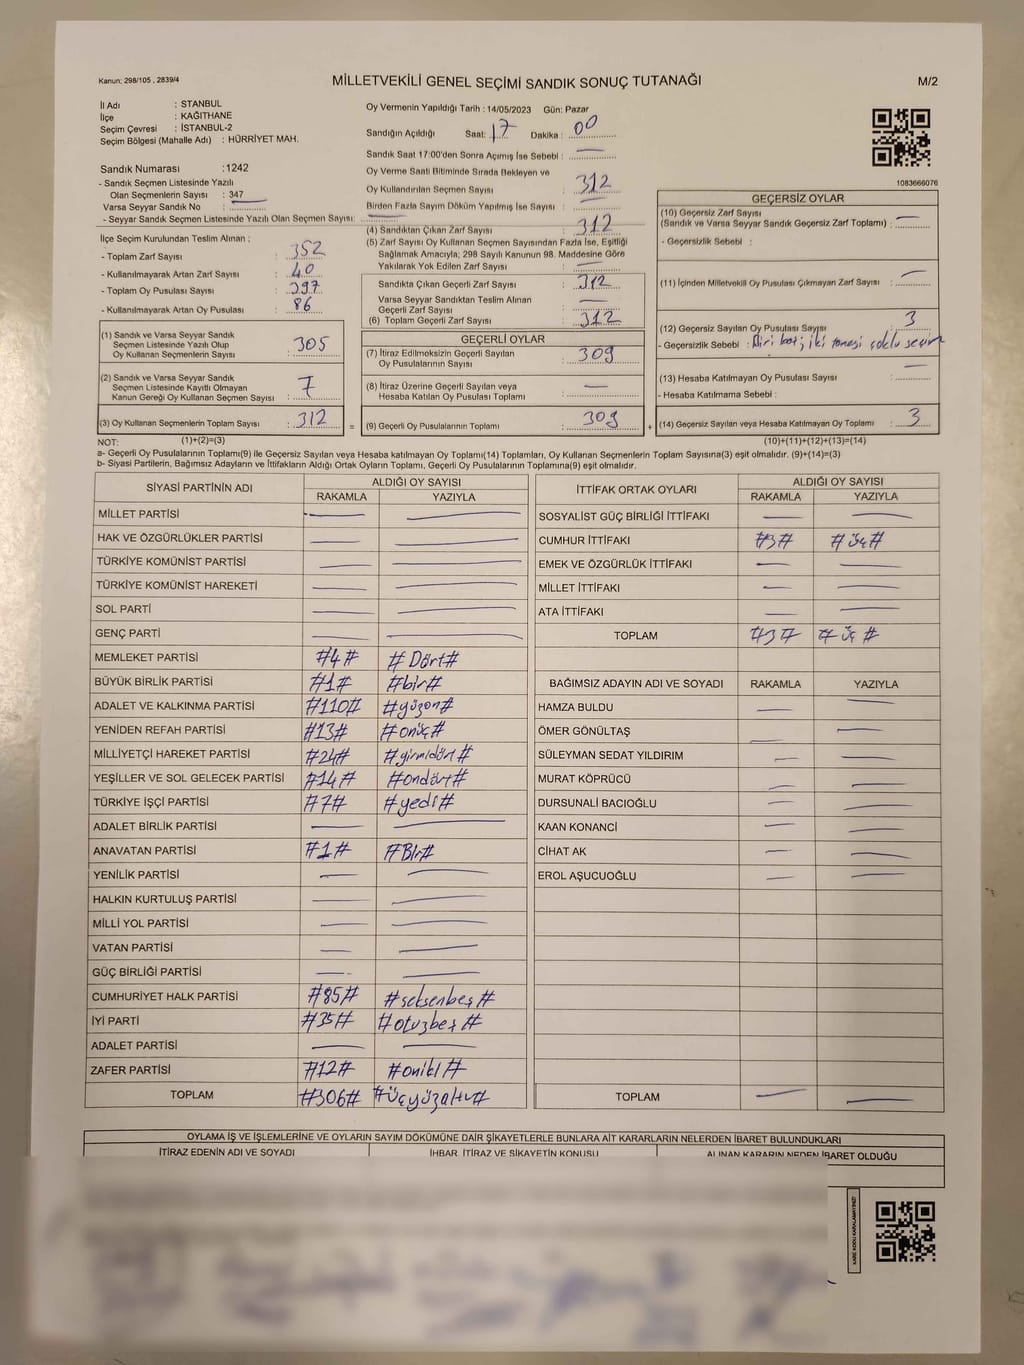 Kanun: 298/105 , 2839/4
MİLLETVEKİLİ GENEL SEÇİMİ SANDIK SONUÇ TUTANAĞI
M/2
İl Adı : STANBUL
İlçe : KAĞITHANE
Seçim Çevresi : İSTANBUL-2
Seçim Bölgesi (Mahalle Adı) : HÜRRİYET MAH.
Sandık Numarası :1242
- Sandık Seçmen Listesinde Yazılı
Olan Seçmenlerin Sayısı : 347
Varsa Seyyar Sandık No :
- Seyyar Sandık Seçmen Listesinde Yazılı Olan Seçmen Sayısı:
Oy Vermenin Yapıldığı Tarih : 14/05/2023 Gün: Pazar
Sandığın Açıldığı Saat: 17 Dakika : 00
Sandık Saat 17:00'den Sonra Açımış İse Sebebi :
Oy Verme Saati Bitiminde Sırada Bekleyen ve
Oy Kullandırılan Seçmen Sayısı : 312
Birden Fazla Sayım Döküm Yapılmış İse Sayısı :
1083666076
İlçe Seçim Kurulundan Teslim Alınan ;
- Toplam Zarf Sayısı : 352
- Kullanılmayarak Artan Zarf Sayısı : 40
- Toplam Oy Pusulası Sayısı : 397
- Kullanılmayarak Artan Oy Pusulası : 86
(1) Sandık ve Varsa Seyyar Sandık
Seçmen Listesinde Yazılı Olup
Oy Kullanan Seçmenlerin Sayısı : 305
(2) Sandık ve Varsa Seyyar Sandık
Seçmen Listesinde Kayıtlı Olmayan
Kanun Gereği Oy Kullanan Seçmen Sayısı : 7
(3) Oy Kullanan Seçmenlerin Toplam Sayısı : 312 =
(4) Sandıktan Çıkan Zarf Sayısı : 312
(5) Zarf Sayısı Oy Kullanan Seçmen Sayısından Fazla İse, Eşitliği
Sağlamak Amacıyla; 298 Sayılı Kanunun 98. Maddesine Göre
Yakılarak Yok Edilen Zarf Sayısı :
Sandıkta Çıkan Geçerli Zarf Sayısı : 312
Varsa Seyyar Sandıktan Teslim Alınan
Geçerli Zarf Sayısı :
(6) Toplam Geçerli Zarf Sayısı : 312
GEÇERLİ OYLAR
(7) İtiraz Edilmeksizin Geçerli Sayılan
Oy Pusulalarının Sayısı : 309
(8) İtiraz Üzerine Geçerli Sayılan veya
Hesaba Katılan Oy Pusulası Toplamı :
(9) Geçerli Oy Pusulalarının Toplamı : 309 +
GEÇERSİZ OYLAR
(10) Geçersiz Zarf Sayısı
(Sandık ve Varsa Seyyar Sandık Geçersiz Zarf Toplamı) :
- Geçersizlik Sebebi :
(11) İçinden Milletvekili Oy Pusulası Çıkmayan Zarf Sayısı :
(12) Geçersiz Sayılan Oy Pusulası Sayısı : 3
- Geçersizlik Sebebi : Biri boş; iki tanesi çoklu seçim
(13) Hesaba Katılmayan Oy Pusulası Sayısı :
- Hesaba Katılmama Sebebi :
(14) Geçersiz Sayılan veya Hesaba Katılmayan Oy Toplamı : 3
NOT: (1)+(2)=(3) (10)+(11)+(12)+(13)=(14)
a- Geçerli Oy Pusulalarının Toplamı(9) ile Geçersiz Sayılan veya Hesaba katılmayan Oy Toplamı(14) Toplamları, Oy Kullanan Seçmenlerin Toplam Sayısına(3) eşit olmalıdır. (9)+(14)=(3)
b- Siyasi Partilerin, Bağımsız Adayların ve İttifakların Aldığı Ortak Oyların Toplamı, Geçerli Oy Pusulalarının Toplamına(9) eşit olmalıdır.
SİYASİ PARTİNİN ADI ALDIĞI OY SAYISI
RAKAMLA YAZIYLA
MİLLET PARTİSİ
HAK VE ÖZGÜRLÜKLER PARTİSİ
TÜRKİYE KOMÜNİST PARTİSİ
TÜRKİYE KOMÜNİST HAREKETİ
SOL PARTİ
GENÇ PARTİ
MEMLEKET PARTİSİ #4# # Dört#
BÜYÜK BİRLİK PARTİSİ #1# #bir#
ADALET VE KALKINMA PARTİSİ #110# #yüzon#
YENİDEN REFAH PARTİSİ #13# #onüç#
MİLLİYETÇİ HAREKET PARTİSİ #24# #yirmidört#
YEŞİLLER VE SOL GELECEK PARTİSİ #14# #ondört#
TÜRKİYE İŞÇİ PARTİSİ #7# #yedi#
ADALET BİRLİK PARTİSİ
ANAVATAN PARTİSİ #1# #Bir#
YENİLİK PARTİSİ
HALKIN KURTULUŞ PARTİSİ
MİLLİ YOL PARTİSİ
VATAN PARTİSİ
GÜÇ BİRLİĞİ PARTİSİ
CUMHURİYET HALK PARTİSİ #85# #seksenbeş#
İYİ PARTİ #35# #otuzbeş#
ADALET PARTİSİ
ZAFER PARTİSİ #12# #oniki#
TOPLAM #306# #üçyüzaltı#
İTTİFAK ORTAK OYLARI ALDIĞI OY SAYISI
RAKAMLA YAZIYLA
SOSYALİST GÜÇ BİRLİĞİ İTTİFAKI
CUMHUR İTTİFAKI #3# #üç#
EMEK VE ÖZGÜRLÜK İTTİFAKI
MİLLET İTTİFAKI
ATA İTTİFAKI
TOPLAM #3# #üç#
BAĞIMSIZ ADAYIN ADI VE SOYADI RAKAMLA YAZIYLA
HAMZA BULDU
ÖMER GÖNÜLTAŞ
SÜLEYMAN SEDAT YILDIRIM
MURAT KÖPRÜCÜ
DURSUNALİ BACIOĞLU
KAAN KONANCİ
CİHAT AK
EROL AŞUCUOĞLU
TOPLAM
OYLAMA İŞ VE İŞLEMLERİNE VE OYLARIN SAYIM DÖKÜMÜNE DAİR ŞİKAYETLERLE BUNLARA AİT KARARLARIN NELERDEN İBARET BULUNDUKLARI
İTİRAZ EDENİN ADI VE SOYADI İHBAR, İTİRAZ VE ŞİKAYETİN KONUSU ALINAN KARARIN NEDEN İBARET OLDUĞU
KARE KODU KARALAMAYINIZ!